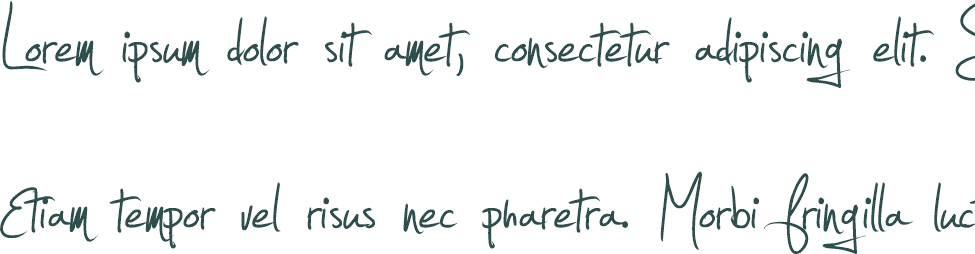 Lorem ipsum dolor sit amet, consectetur adipiscing elit.
Etiam tempor vel risus nec pharetra. Morbi fringilla